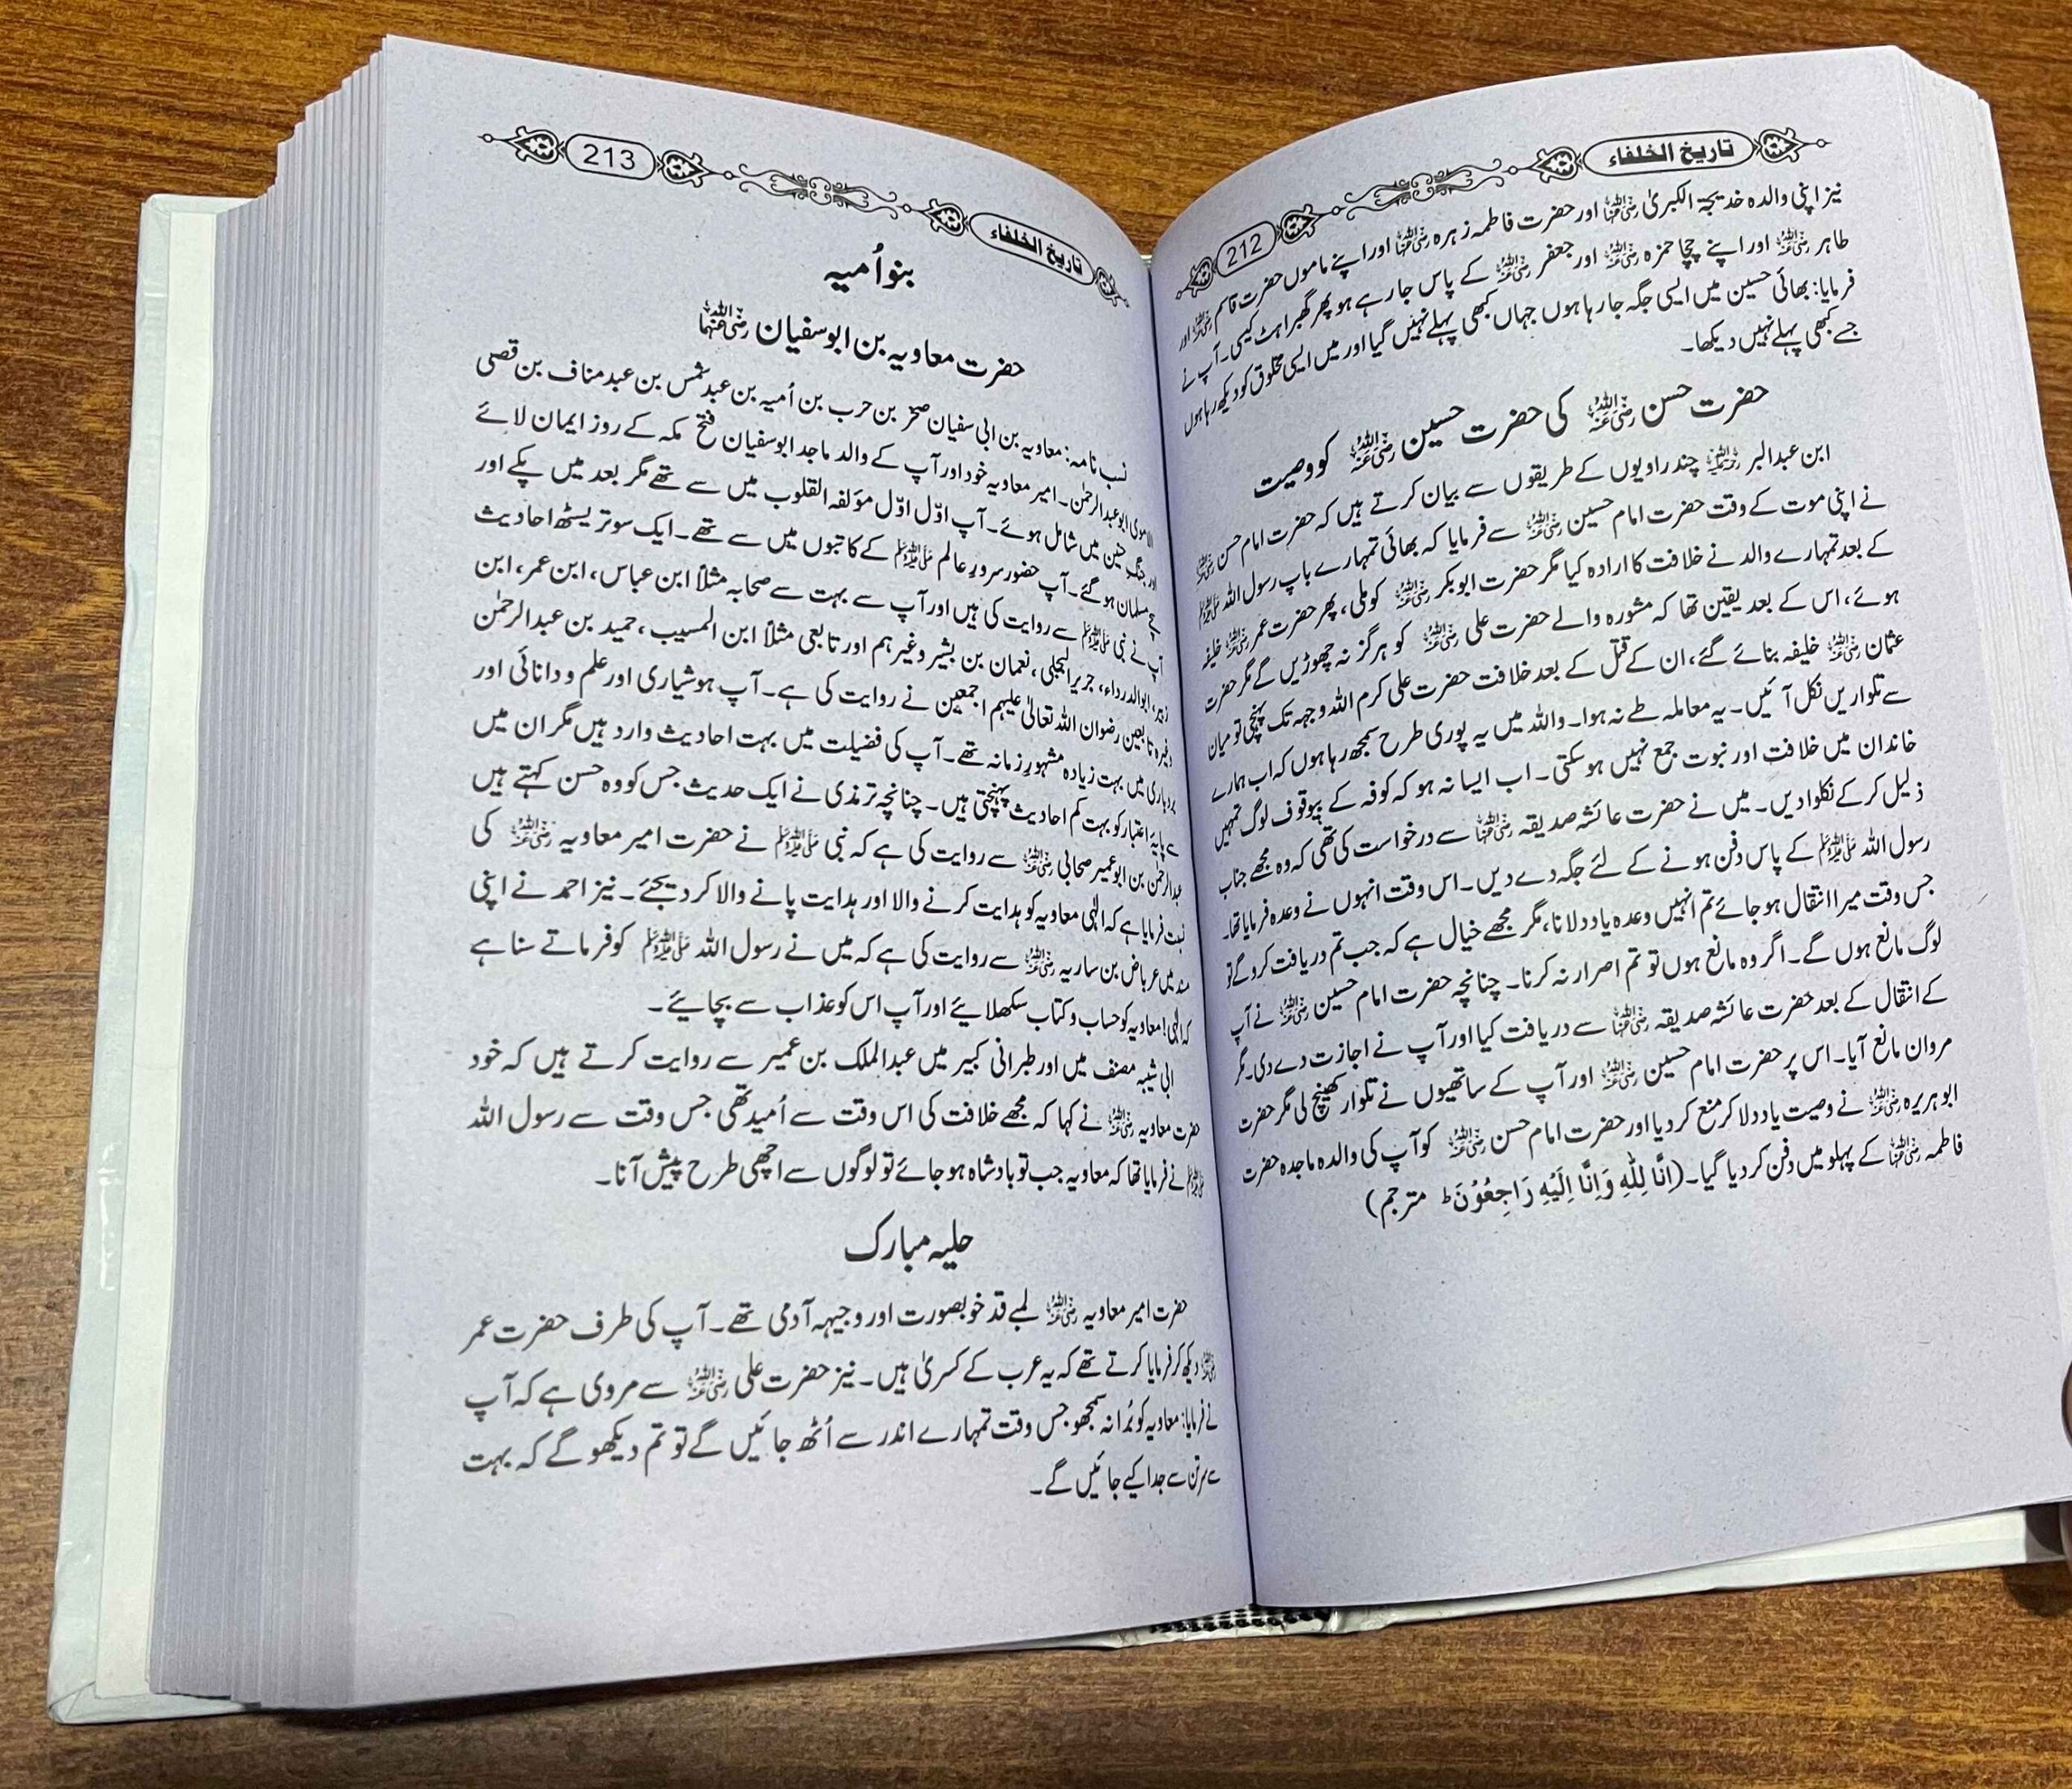 تاریخ الخلفاء
212
نیز اپنی والدہ خدیجۃ الکبریٰ رضی اللہ عنہا اور حضرت فاطمہ زہرہ رضی اللہ عنہا اور اپنے ماموں حضرت قاسم رضی اللہ عنہ اور
طاہر رضی اللہ عنہ اور اپنے چچا حمزہ رضی اللہ عنہ اور جعفر رضی اللہ عنہ کے پاس جا رہے ہو پھر گھبراہٹ کیسی۔ آپ نے
فرمایا: بھائی حسین میں ایسی جگہ جا رہا ہوں جہاں کبھی پہلے نہیں گیا اور میں ایسی مخلوق کو دیکھ رہا ہوں
جسے کبھی پہلے نہیں دیکھا۔
حضرت حسن رضی اللہ عنہ کی حضرت حسین رضی اللہ عنہ کو وصیت
ابن عبدالبر رحمۃ اللہ علیہ چند راویوں کے طریقوں سے بیان کرتے ہیں کہ حضرت امام حسن رضی اللہ عنہ
نے اپنی موت کے وقت حضرت امام حسین رضی اللہ عنہ سے فرمایا کہ بھائی تمہارے باپ رسول اللہ ﷺ
کے بعد تمہارے والد نے خلافت کا ارادہ کیا مگر حضرت ابوبکر رضی اللہ عنہ کو ملی، پھر حضرت عمر رضی اللہ عنہ خلیفہ
ہوئے، اس کے بعد یقین تھا کہ مشورہ والے حضرت علی رضی اللہ عنہ کو ہرگز نہ چھوڑیں گے مگر حضرت
عثمان رضی اللہ عنہ خلیفہ بنائے گئے، ان کے قتل کے بعد خلافت حضرت علی کرم اللہ وجہہ تک پہنچی تو میان
سے تلواریں نکل آئیں۔ یہ معاملہ طے نہ ہوا۔ واللہ میں یہ پوری طرح سمجھ رہا ہوں کہ اب ہمارے
خاندان میں خلافت اور نبوت جمع نہیں ہوسکتی۔ اب ایسا نہ ہو کہ کوفہ کے بیوقوف لوگ تمہیں
ذلیل کرکے نکلوا دیں۔ میں نے حضرت عائشہ صدیقہ رضی اللہ عنہا سے درخواست کی تھی کہ وہ مجھے جناب
رسول اللہ ﷺ کے پاس دفن ہونے کے لئے جگہ دے دیں۔ اس وقت انہوں نے وعدہ فرمایا تھا۔
جس وقت میرا انتقال ہو جائے تم انہیں وعدہ یاد دلانا، مگر مجھے خیال ہے کہ جب تم دریافت کرو گے تو
لوگ مانع ہوں گے۔ اگر وہ مانع ہوں تو تم اصرار نہ کرنا۔ چنانچہ حضرت امام حسین رضی اللہ عنہ نے آپ
کے انتقال کے بعد حضرت عائشہ صدیقہ رضی اللہ عنہا سے دریافت کیا اور آپ نے اجازت دے دی۔ مگر
مروان مانع آیا۔ اس پر حضرت امام حسین رضی اللہ عنہ اور آپ کے ساتھیوں نے تلوار کھینچ لی مگر حضرت
ابوہریرہ رضی اللہ عنہ نے وصیت یاد دلا کر منع کردیا اور حضرت امام حسن رضی اللہ عنہ کو آپ کی والدہ ماجدہ حضرت
فاطمہ رضی اللہ عنہا کے پہلو میں دفن کردیا گیا۔ (اِنَّا لِلّٰهِ وَاِنَّا اِلَيْهِ رَاجِعُوْنَ ط مترجم)
تاریخ الخلفاء
213
بنو اُمیہ
حضرت معاویہ بن ابو سفیان رضی اللہ عنہما
نسب نامہ: معاویہ بن ابی سفیان صخر بن حرب بن اُمیہ بن عبد شمس بن عبد مناف بن قصی
الاموی ابو عبدالرحمٰن۔ امیر معاویہ خود اور آپ کے والد ماجد ابوسفیان فتح مکہ کے روز ایمان لائے
اور جنگِ حنین میں شامل ہوئے۔ آپ اوّل اوّل مؤلفہ القلوب میں سے تھے مگر بعد میں پکے اور
سچے مسلمان ہوگئے۔ آپ حضور سرورِ عالم ﷺ کے کاتبوں میں سے تھے۔ ایک سو تریسٹھ احادیث
آپ نے نبی ﷺ سے روایت کی ہیں اور آپ سے بہت سے صحابہ مثلاً ابن عباس، ابن عمر، ابن
زبیر، ابوالدرداء، جریر البجلی، نعمان بن بشیر وغیرہم اور تابعی مثلاً ابن المسیب، حمید بن عبدالرحمٰن
وغیرہ تابعین رضوان اللہ تعالیٰ علیہم اجمعین نے روایت کی ہے۔ آپ ہوشیاری اور علم و دانائی اور
بردباری میں بہت زیادہ مشہورِ زمانہ تھے۔ آپ کی فضیلت میں بہت احادیث وارد ہیں مگر ان میں
سے پایۂ اعتبار کو بہت کم احادیث پہنچتی ہیں۔ چنانچہ ترمذی نے ایک حدیث جس کو وہ حسن کہتے ہیں
عبدالرحمٰن بن ابو عمیر صحابی رضی اللہ عنہ سے روایت کی ہے کہ نبی ﷺ نے حضرت امیر معاویہ رضی اللہ عنہ کی
نسبت فرمایا ہے کہ الٰہی معاویہ کو ہدایت کرنے والا اور ہدایت پانے والا کر دیجئے۔ نیز احمد نے اپنی
مسند میں عرباض بن ساریہ رضی اللہ عنہ سے روایت کی ہے کہ میں نے رسول اللہ ﷺ کو فرماتے سنا ہے
کہ الٰہی! معاویہ کو حساب و کتاب سکھلائیے اور آپ اس کو عذاب سے بچائیے۔
ابی شیبہ مصنف میں اور طبرانی کبیر میں عبدالملک بن عمیر سے روایت کرتے ہیں کہ خود
حضرت معاویہ رضی اللہ عنہ نے کہا کہ مجھے خلافت کی اس وقت سے اُمید تھی جس وقت سے رسول اللہ
ﷺ نے فرمایا تھا کہ معاویہ جب تو بادشاہ ہو جائے تو لوگوں سے اچھی طرح پیش آنا۔
حلیہ مبارک
حضرت امیر معاویہ رضی اللہ عنہ لمبے قد خوبصورت اور وجیہہ آدمی تھے۔ آپ کی طرف حضرت عمر
رضی اللہ عنہ دیکھ کر فرمایا کرتے تھے کہ یہ عرب کے کسریٰ ہیں۔ نیز حضرت علی رضی اللہ عنہ سے مروی ہے کہ آپ
نے فرمایا: معاویہ کو بُرا نہ سمجھو جس وقت تمہارے اندر سے اُٹھ جائیں گے تو تم دیکھو گے کہ بہت
سے سر تن سے جدا کیے جائیں گے۔